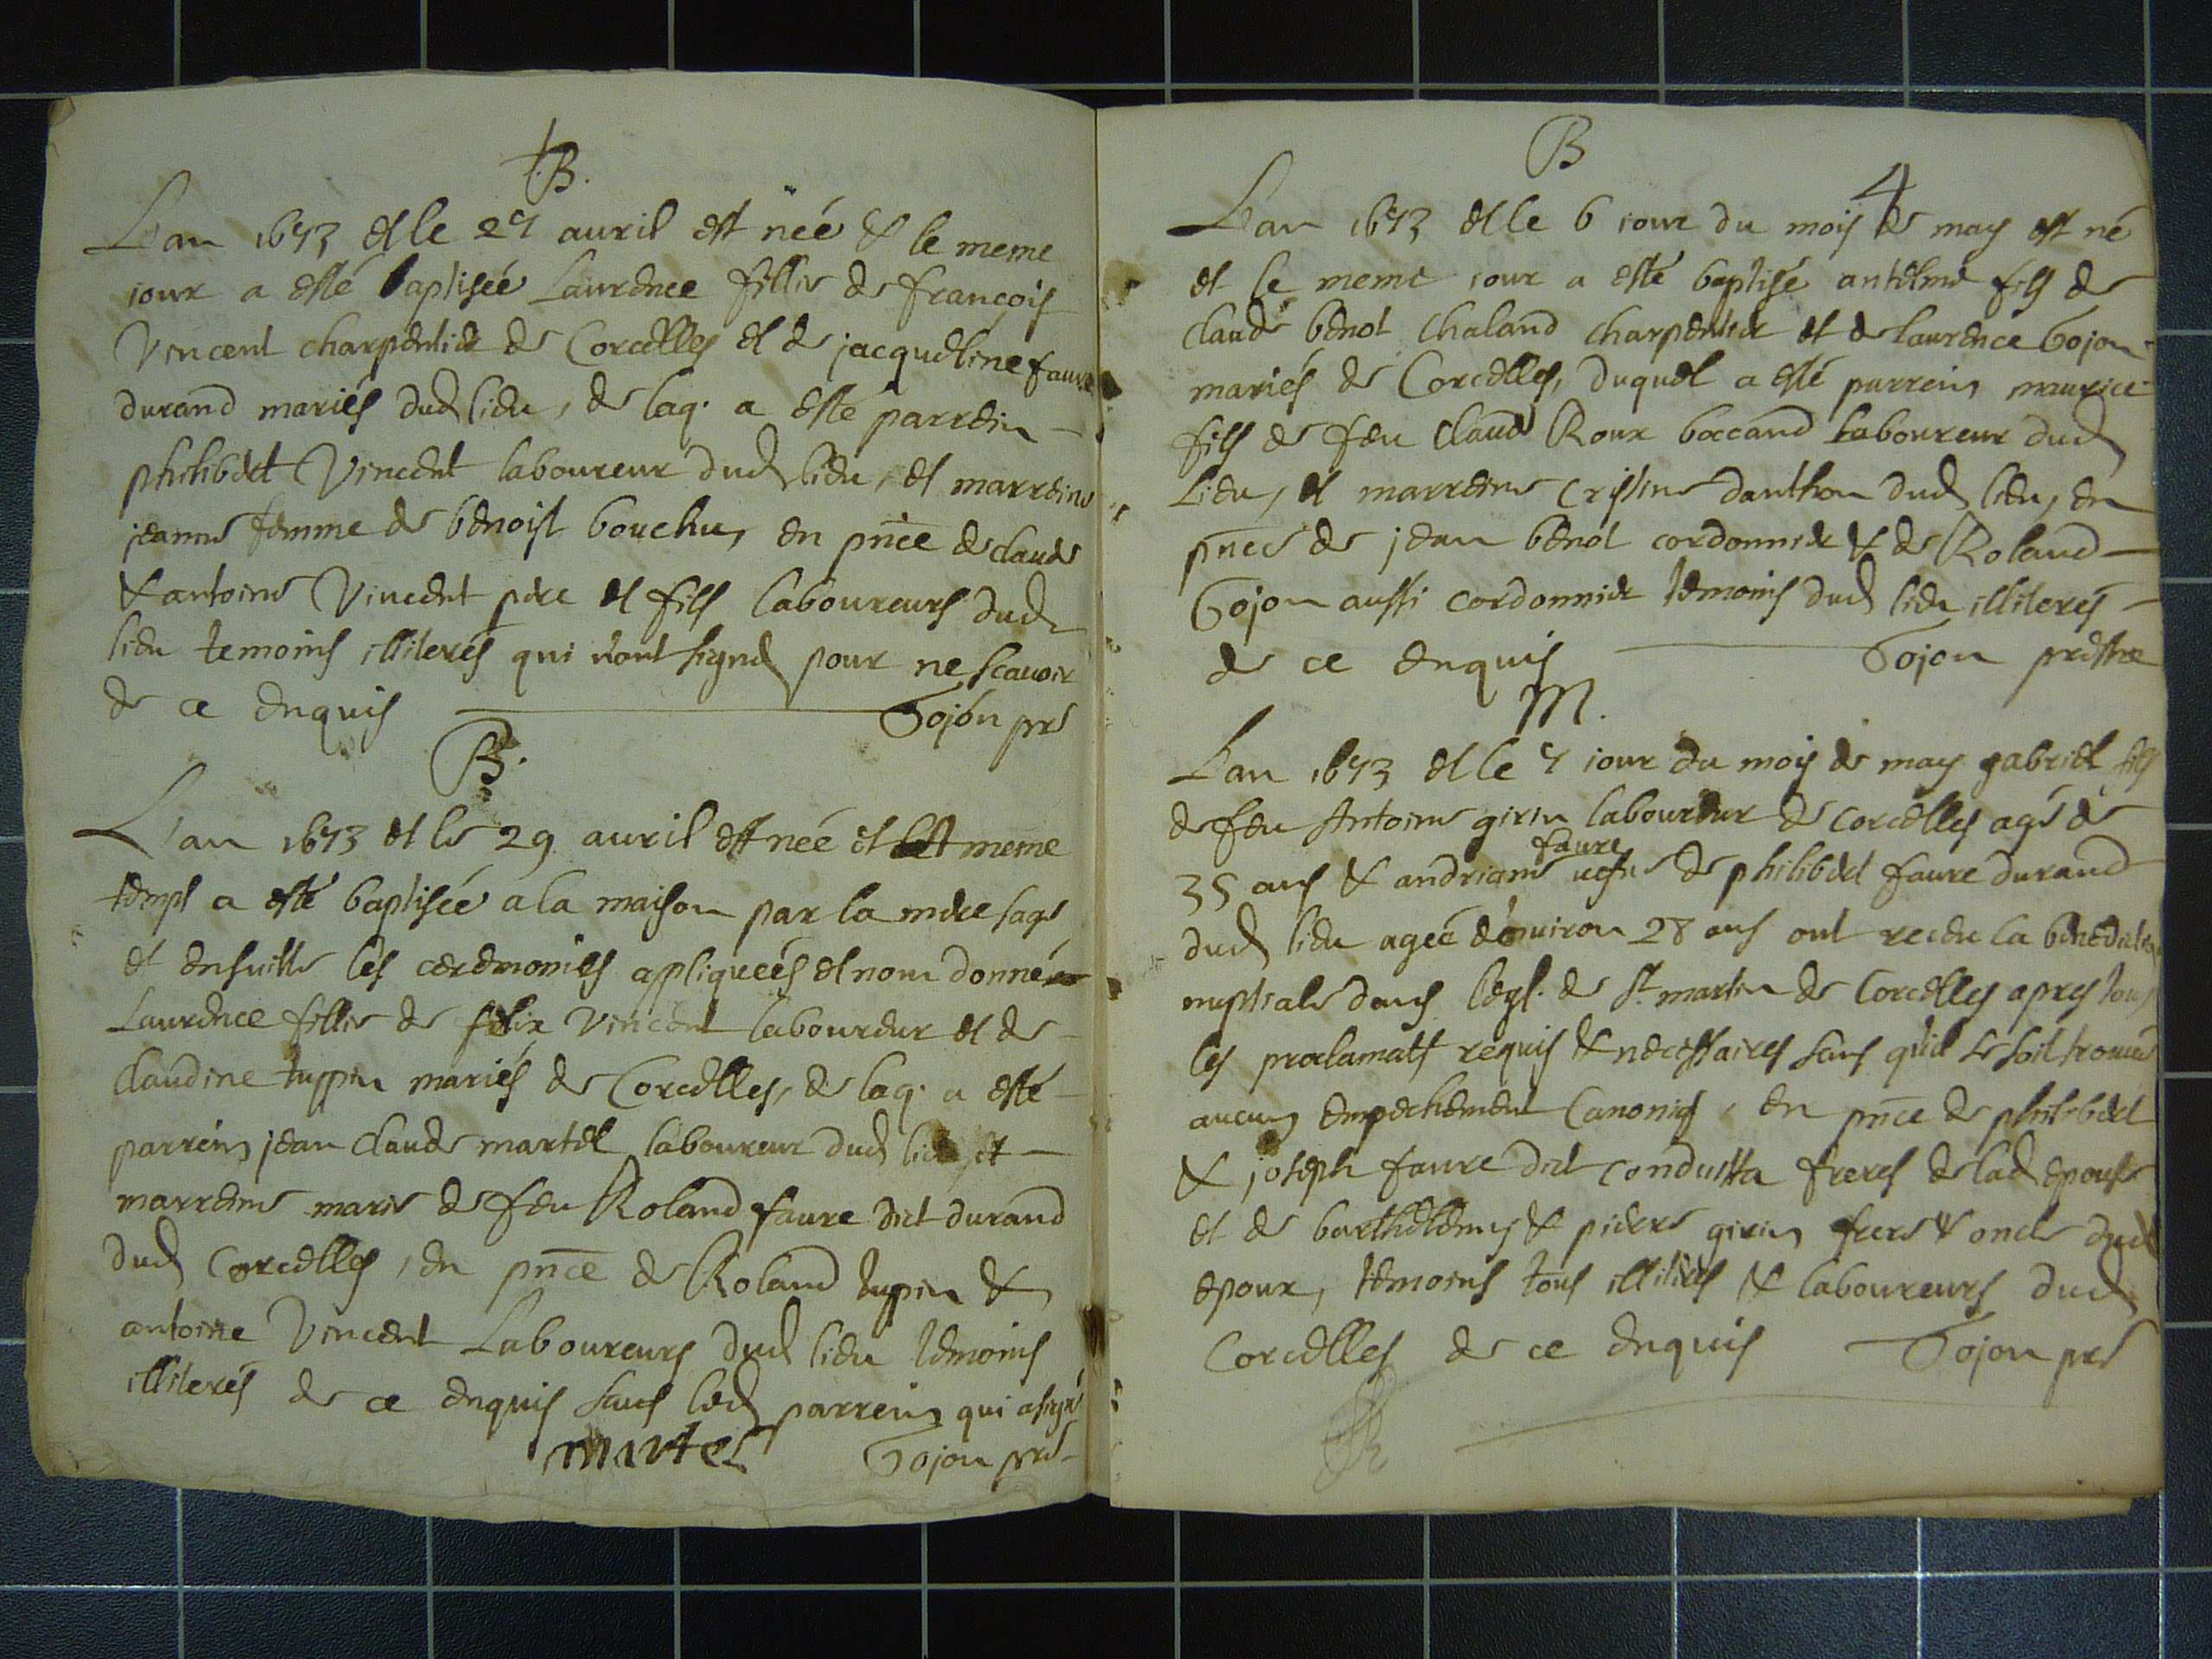 B.
L'an 1673 et le 27 auril est née & le meme
iour a esté baptiséé Laurence fillie de françois
Vincent charpentier de Corcelles et de jacqueline faure
durand mariés dud lieu, de laq. a esté parrein
philibert Vincent laboureur dud lieu, et marreine
jeanne femme de benoist bouchu, en pnce de claude
& antoine Vincent pere et fils laboureurs dud
lieu temoins illiterés qui n'ont signé pour ne scauoir
de ce enquis Gojon pre
B.
L'an 1673 et le 29 auril est née et meme
temps a esté baptiséé a la maison par la mere sage
et ensuitte les ceremonies apliquéés et nom donné
Laurence fillie de felix Vincent laboureur et de
claudine tuppin mariés de Corcelles, de laq. a esté
parrein jean claude martel laboureur dud lieu, et
marreine marie de feu Roland faure dict durand
dud Corcelles, en pnce de Roland tupin &
antoine Vincent Laboureurs dud lieu temoins
illiterés de ce enquis sauf led parrein qui a signé
martel Gojon pre
B
4
L'an 1673 et le 6 iour du mois de may est né
et le meme iour a esté baptisé antelme fils de
claude benot chaland charpentier et de laurence Gojon
mariés de Corcelles, duquel a esté parrein maurice
fils de feu claude Roux boccand laboureur dud
Lieu, et marreine cristine danthon dud lieu, en
pnce de jean benot cordonnier & de Roland
Gojon aussi cordonnier temoins dud lieu illiterés
de ce enquis Gojon prestre
M.
L'an 1673 et le 7 iour du mois de may gabriel fils
de feu Antoine girin laboureur de corcelles agé de
35 ans & andriane faure uefue de philibert faure durand
dud lieu ageé d'enuiron 28 ans ont receu la benediction
nuptiale dans l'egl. de St. martin de Corcelles apres tous
les proclamats requis & necessaires sans qu'il se soit trouué
aucun empechement Canoniq, en pnce de philibert
& joseph faure dict conduitta freres de lad epouse
et de barthelemy & pierre girin frere & oncle dud
epoux, temoins tous illiterés & laboureurs dud
Corcelles de ce enquis Gojon pre